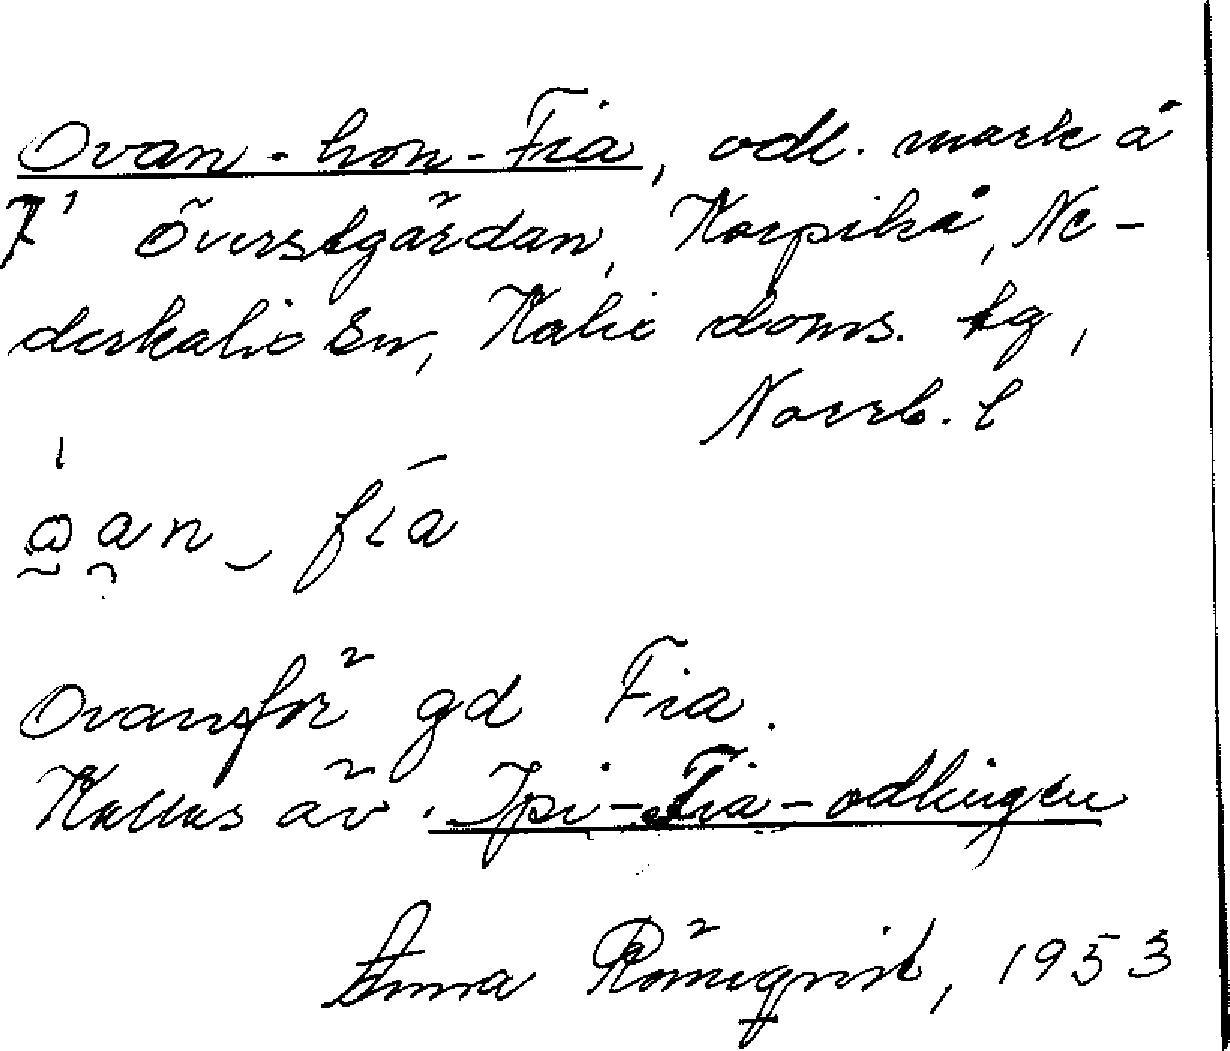 Ovan-hon-Fia, odl. mark å
7¹ Överstgärdan, Korpikå, Ne-
derkalix sn, Kalix doms. tg,
Norrb. l
Ovanför gd Fia.
Kallas äv. Ipi-Fia-odlingen
Anna Römqvist, 1953